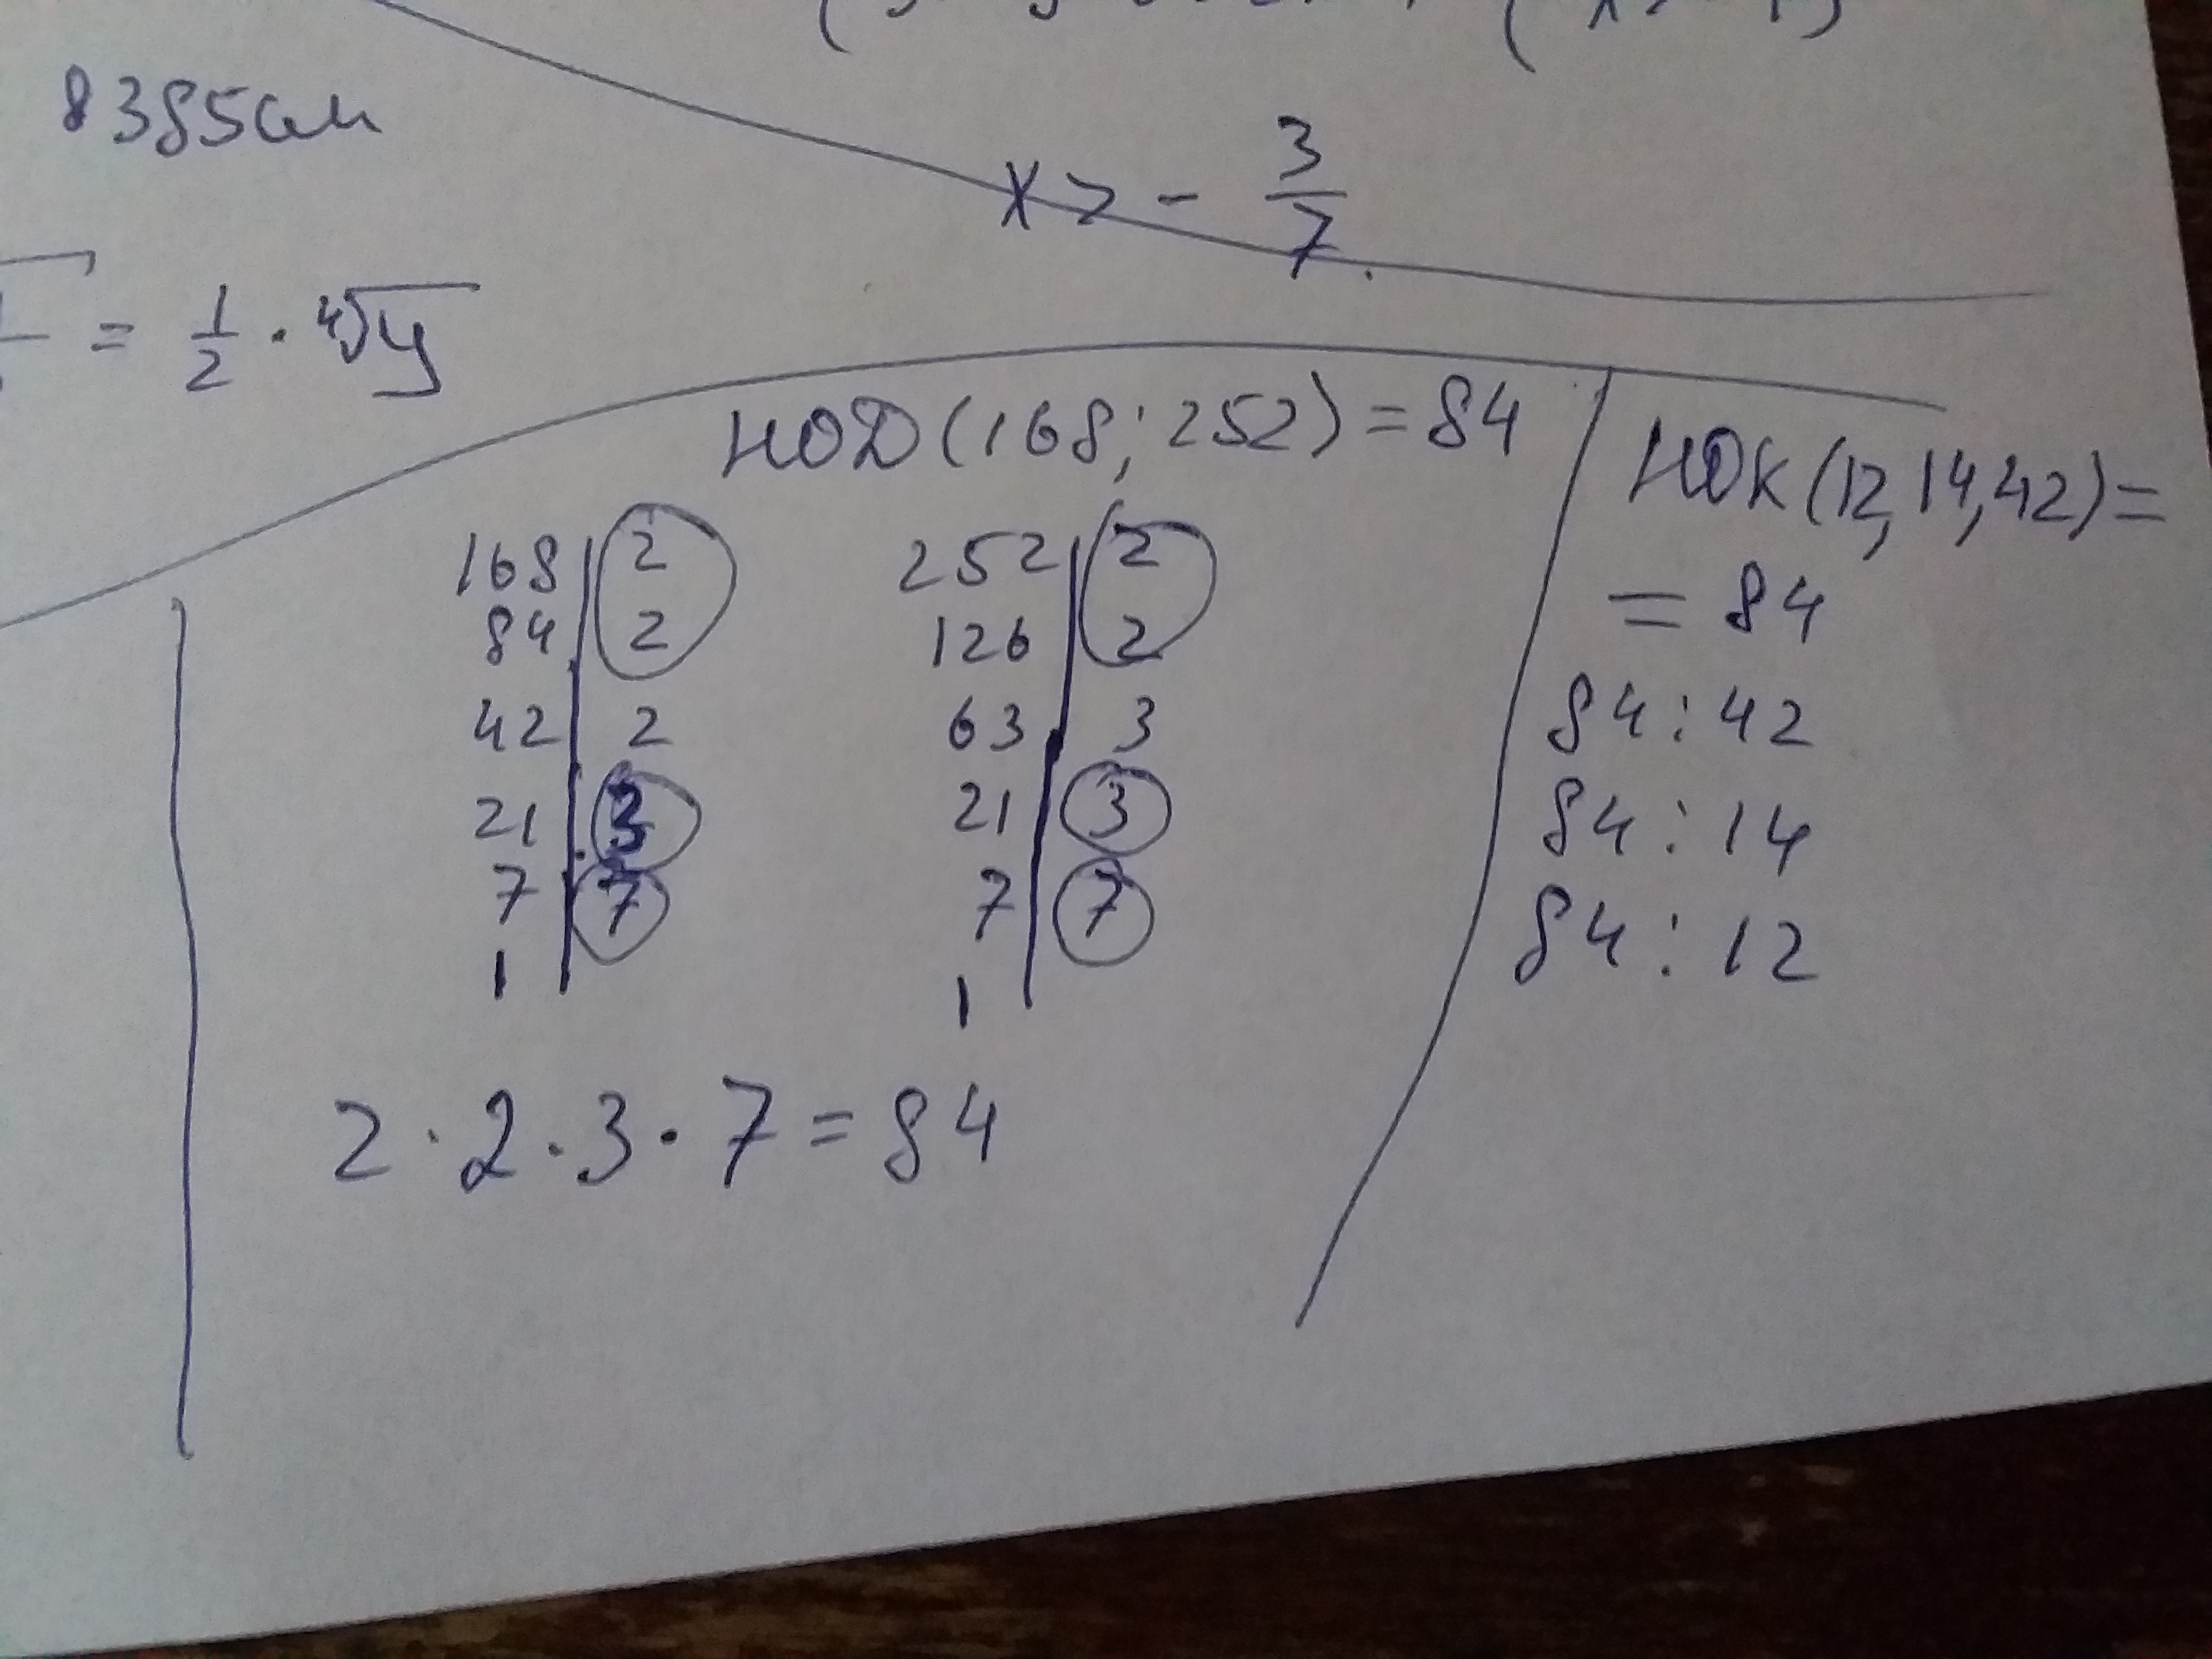 8385см
x > - 3/7.
= 1/2 · ⁴√y
НОД(168; 252) = 84
168 | 2
84 | 2
42 | 2
21 | 3
7 | 7
1
252 | 2
126 | 2
63 | 3
21 | 3
7 | 7
1
2 · 2 · 3 · 7 = 84
НОК(12, 14, 42) =
= 84
84 : 42
84 : 14
84 : 12